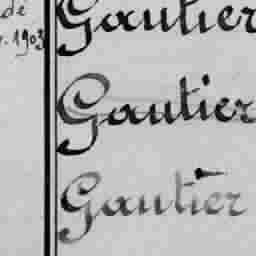 de
1903
Gautier
Gautier
Gautier